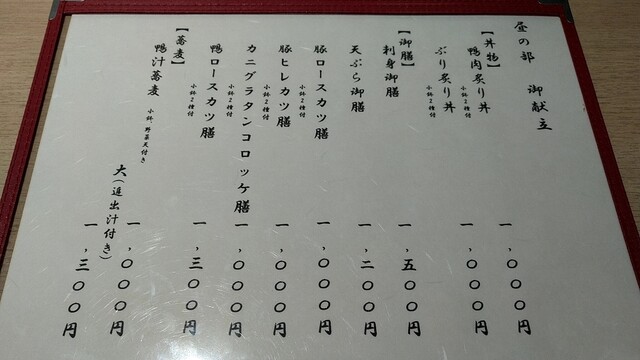 昼の部 御献立
【丼物】
鴨肉炙り丼 一,〇〇〇円
小鉢2種付
ぶり炙り丼 一,〇〇〇円
小鉢2種付
【御膳】
刺身御膳 一,五〇〇円
天ぷら御膳 一,二〇〇円
豚ロースカツ膳 一,〇〇〇円
小鉢2種付
豚ヒレカツ膳 一,〇〇〇円
小鉢2種付
カニグラタンコロッケ膳 一,〇〇〇円
小鉢2種付
鴨ロースカツ膳 一,三〇〇円
小鉢2種付
【蕎麦】
鴨汁蕎麦 小鉢・野菜天付き 一,〇〇〇円
大(追出汁付き) 一,三〇〇円